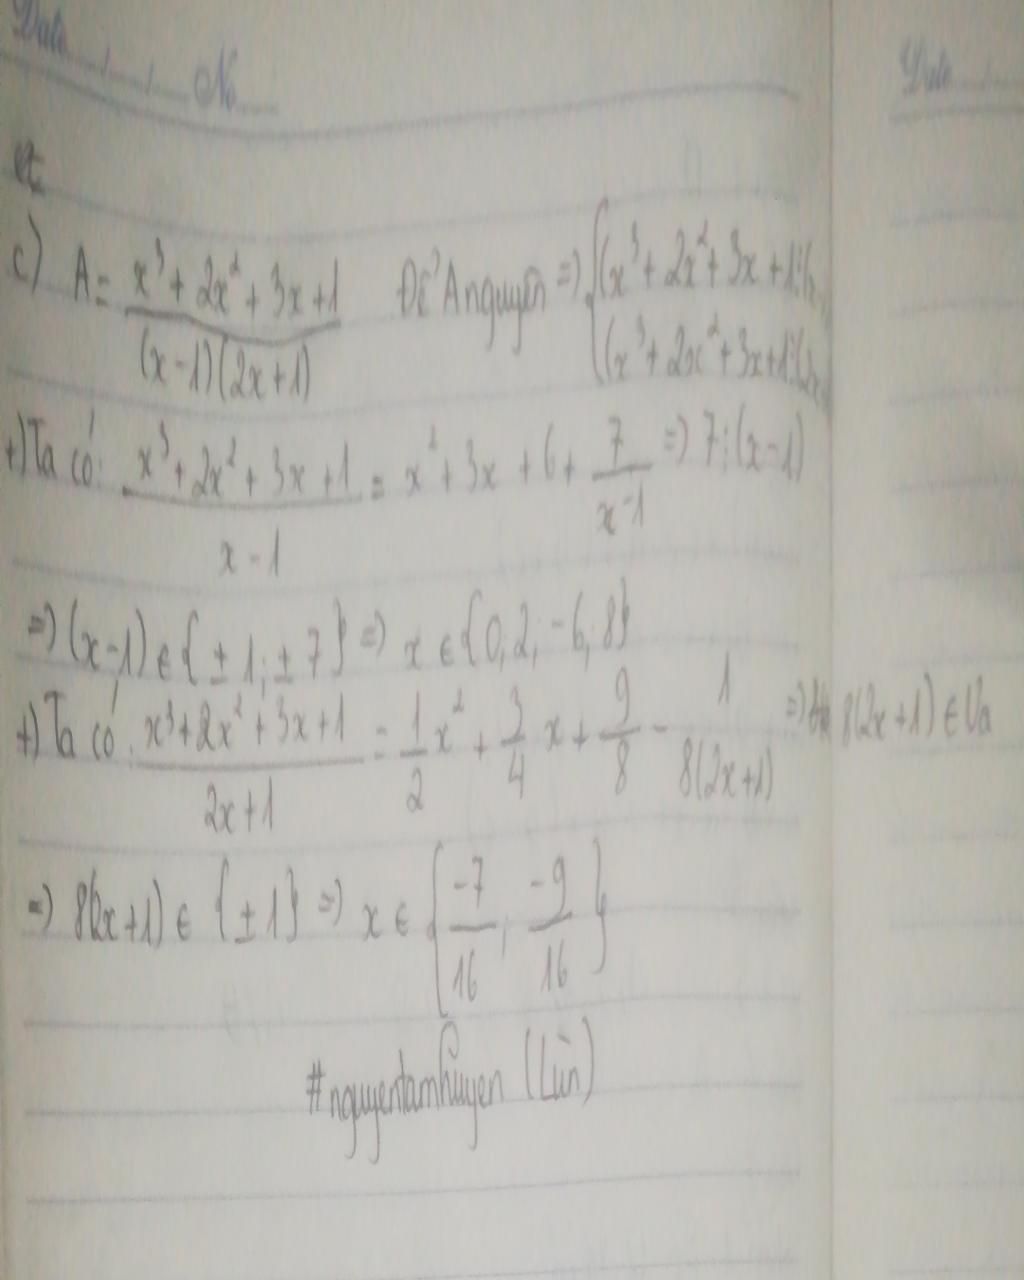 Date / / No
Date /
c) A = (x³ + 2x² + 3x + 1)/((x-1)(2x+1)) Để A nguyên => { (x³ + 2x² + 3x + 1⋮(
(x³ + 2x² + 3x + 1⋮(2x
+) Ta có: (x³ + 2x² + 3x + 1)/(x - 1) = x² + 3x + 6 + 7/(x-1) => 7⋮(x-1)
=> (x-1) ∈ {±1; ±7} => x ∈ {0; 2; -6; 8}
+) Ta có: (x³ + 2x² + 3x + 1)/(2x+1) = 1/2 x² + 3/4 x + 9/8 - 1/(8(2x+1)) => 8(2x+1) ∈ Ư
=> 8(2x+1) ∈ {±1} => x ∈ {-7/16; -9/16}
#nguyentamhuyen (Lùn)